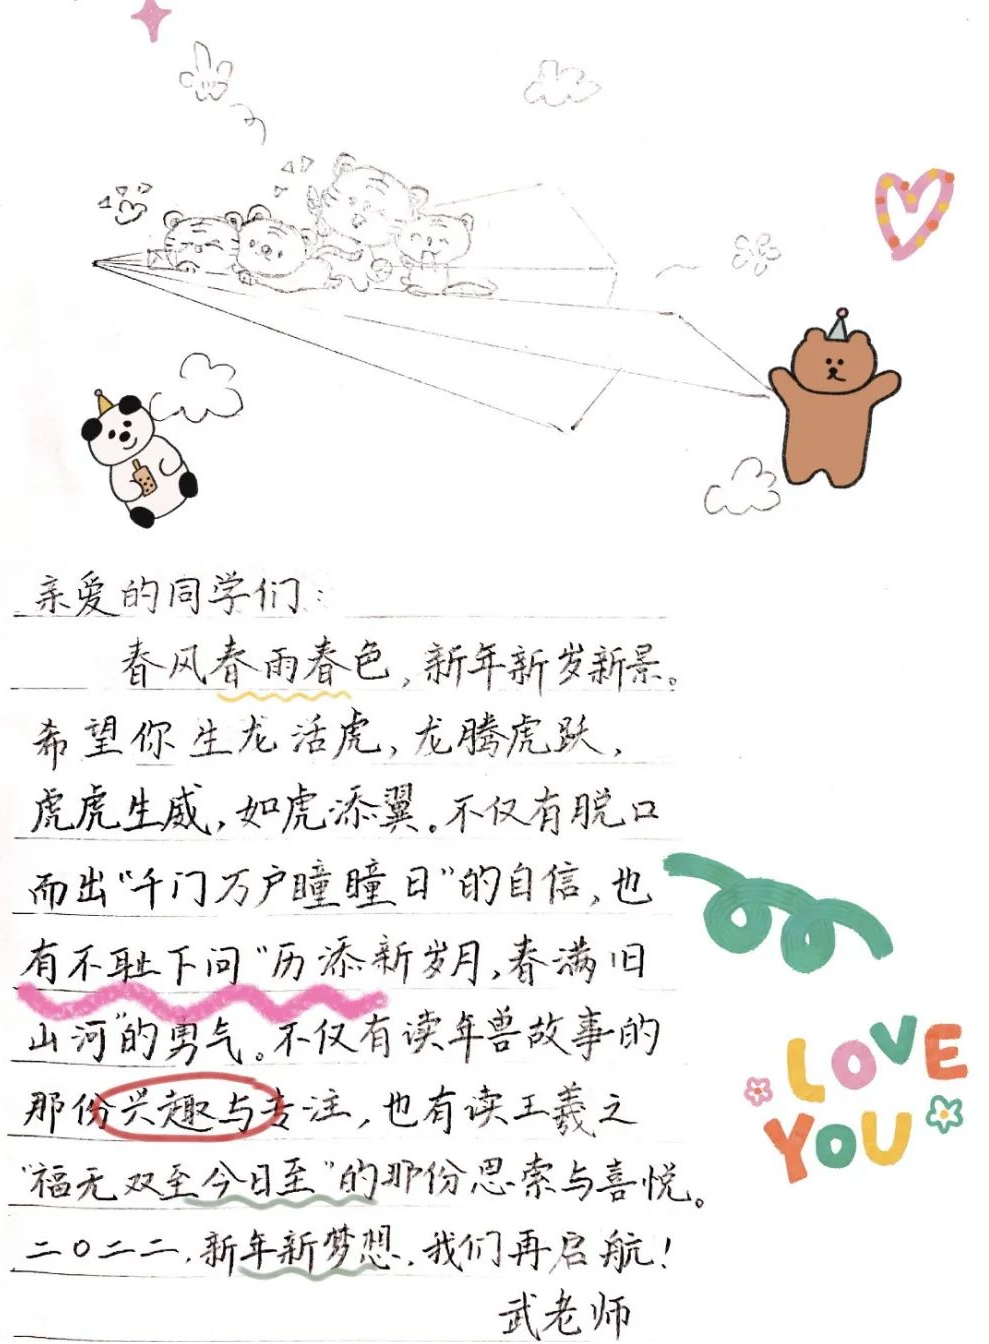 亲爱的同学们：
春风春雨春色，新年新岁新景。
希望你生龙活虎，龙腾虎跃，
虎虎生威，如虎添翼。不仅有脱口
而出“千门万户瞳瞳日”的自信，也
有不耻下问“历添新岁月，春满旧
山河”的勇气。不仅有读年兽故事的
那份兴趣与专注，也有读王羲之
“福无双至今日至”的那份思索与喜悦。
二〇二二，新年新梦想，我们再启航！
武老师
LOVE
YOU